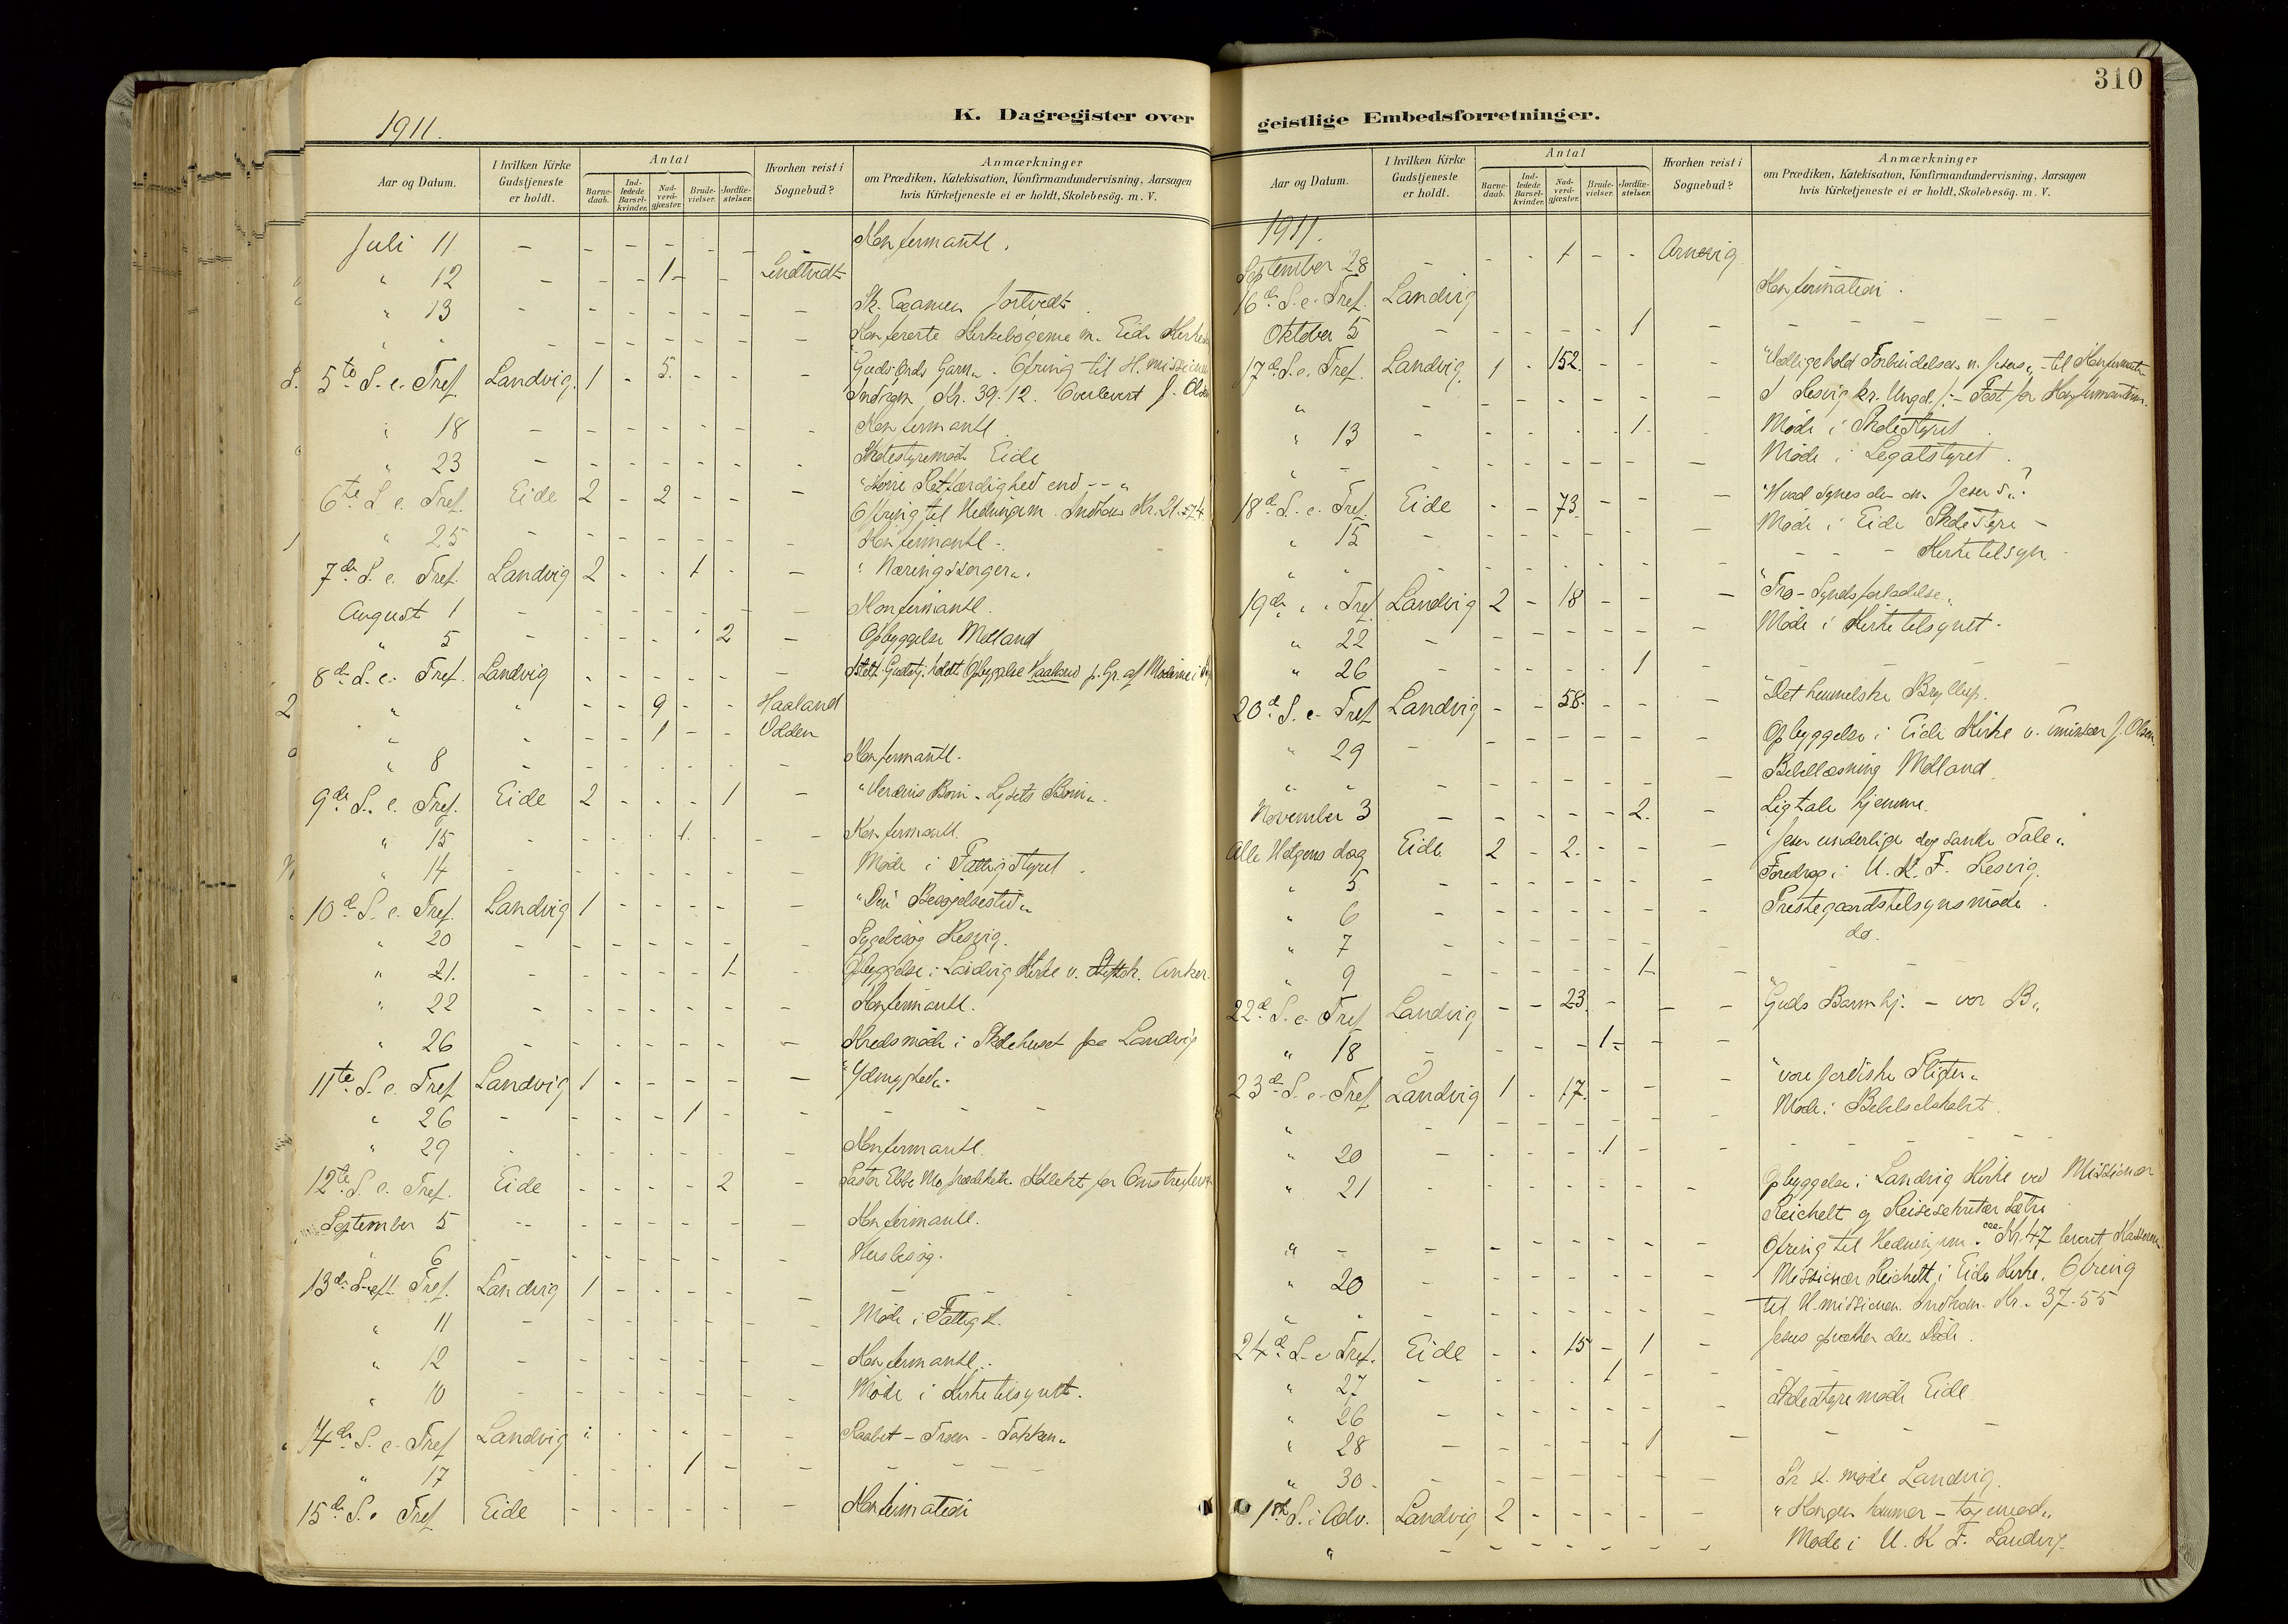 310
1911.
K. Dagregister over
Aar og Datum.
I hvilken Kirke Gudstjeneste er holdt.
Antal
Barne-daab.
Ind-ledede Barsel-kvinder.
Nad-verd-gjæster.
Brude-vielser.
Jordfæ-stelser.
Hvorhen reist i Sognebud?
Anmærkninger
om Prædiken, Katekisation, Konfirmandundervisning, Aarsagen
hvis Kirketjeneste ei er holdt, Skolebesög. m. V.
Juli 11 - - - - - - Konfirmantl.
" 12 - - - 1 - - Lindtvedt
" 13 - - - - - - - Sk. Examen
" " - - - - - - - Konfererte Kirkebøgerne m. Eide
5te S. e. Tref. Landvig. 1 - 5. - - - Guds Ords Garn. Ofring til H. mission
Indkom Kr. 39.12. Overlevert J. Olsen
" 18 - - - - - - - Konfirmantl.
" 23 - - - - - - - Skolestyremøde Eide
6te S. e. Tref. Eide 2 - 2 - - - "Større Retfærdighed end - - "
Ofring til Hedningem. Indkom Kr. 21.54
" 25 - - - - - - - Konfirmantl.
7de S. e. Tref. Landvig 2 - - 1 - - "Næringssorger".
August 1 - - - - - - - Konfirmantl.
" 5 - - - - - 2 - Opbyggelse Molland
8de S. e. Tref. Landvig - - - - - -
" " - - 9 - - Haaland
" " - - 1 - - Olden
" 8 - - - - - - - Konfirmantl.
9de S. e. Tref. Eide 2 - - - 1 - "Verdens Børn - Lysets Børn".
" 15 - - - - 1. - - Konfirmantl.
" 14 - - - - - - - Møde i Fattigstyret.
10de S. e. Tref. Landvig 1 - - - - - "Din Besøgelsestid"
" 20 - - - - - - - Sygebesøg Resvig.
" 21. - - - - - 1 - Opbyggelse i Landvig Kirke v. Anker
" 22 - - - - - - - Konfirmantl.
" 26 - - - - - - - Kredsmøde i Skolehuset paa Landvig
11te S. e. Tref. Landvig 1 - - - - - "Ydmyghed".
" 26 - - - - 1 - - - - -
" 29 - - - - - - - Konfirmantl.
12te S. e. Tref. Eide - - - - 2 - Pastor Ebbe Mo prædikede. Kollekt for
September 5 - - - - - - - Konfirmantl.
" 6 - - - - - - - Husbesøg.
13de S. eft. Tref. Landvig 1 - - - - - - -
" 11 - - - - - - - Møde i Fattigst.
" 12 - - - - - - - Konfirmantl.
" 10 - - - - - - - Møde i Kirketilsynet.
14de S. e. Tref. Landvig - - - - - Raabet - Troen - Takken"
" 17 - - - - 1 - - - - -
15de S. e Tref Eide - - - - - - Konfirmation
geistlige Embedsforretninger.
Aar og Datum.
I hvilken Kirke Gudstjeneste er holdt.
Antal
Barne-daab.
Ind-ledede Barsel-kvinder.
Nad-verd-gjæster.
Brude-vielser.
Jordfæ-stelser.
Hvorhen reist i Sognebud?
Anmærkninger
om Prædiken, Katekisation, Konfirmandundervisning, Aarsagen
hvis Kirketjeneste ei er holdt, Skolebesög. m. V.
1911.
September 28 - - - 1 - - Arnevig
16de S. e. Tref. Landvig Konfirmation.
Oktober 5 - - - - - 1 - - - -
17de S. e. Tref. Landvig. 1 - 152. - - - "Vedligehold Forbindelsen m. Jesus" - til
" - - - - - - - I Resvig kr. Ungd.f. - Fest for Konfirmanterne.
" 13 - - - - - 1. - Møde i Skolestyret.
" - - - - - - - - Møde i Legatstyret.
18de S. e. Tref. Eide - - 73. - - - "Hvad synes du om Jesus"?
" 15 - - - - - - - Møde i Eide Skolestyre -
" " - - - - - - - - - - Kirketilsyn.
19de " " Tref Landvig 2 - 18 - - - "Tro - Syndsforladelse"
" 22 - - - - - - - Møde i Kirketilsynet.
" 26 - - - - - 1 - - - -
20de S. e. Tref Landvig - - 58. - - - "Det himmelske Bryllup.
" 29 - - - - - - - Opbyggelse i Eide Kirke v. J. Olsen
" " - - - - - - - Bibellæsning Molland.
November 3 - - - - - 2. - Ligtale hjemme.
Alle Helgens dag Eide 2 - 2. - - - "Jesu underlige dog sande Tale".
" 5 - - - - - - - Foredrag i U. K. F. Resvig.
" 6 - - - - - - - Prestegaardstilsynsmøde.
" 7 - - - - - - - do.
" 9 - - - - - 1 - - - -
22de S. e. Tref Landvig - - 23. - - - "Guds Barmhj. - vor B"
" 18 - - - - 1 - -
23de S. e. Tref Landvig 1 - 17. - - - "vore jordiske Pligter"
" - - - - - - - Møde i Bibelselskabet.
" 20 - - - - 1 - - - - -
" 21 - - - - - - - Opbyggelse i Landvig Kirke ved Missionær
Reichelt og Reisesekretær Sætre
" - - - - - - - - Ofring til Hedningem. Kr. 47 levert Kasseren
" 20 - - - - - - - Missionær Reichelt i Eide Kirke. Ofring
" " - - - - - - - til H.missionen. Indkom. Kr. 37.55
24de S. e Tref. Eide - - 15 - 1 - Jesus opvækker den Døde.
" 27 1 -
" 26 - - - - - - - Skolestyremøde Eide
" 28 - - - - - 1 - - -
" 30. - - - - - - - Sk st. møde Landvig.
1ste S. i Adv. Landvig 2 - - - - - "Kongen kommer - tag imod"
" - - - - - - - Møde i U. K F. Landvig.